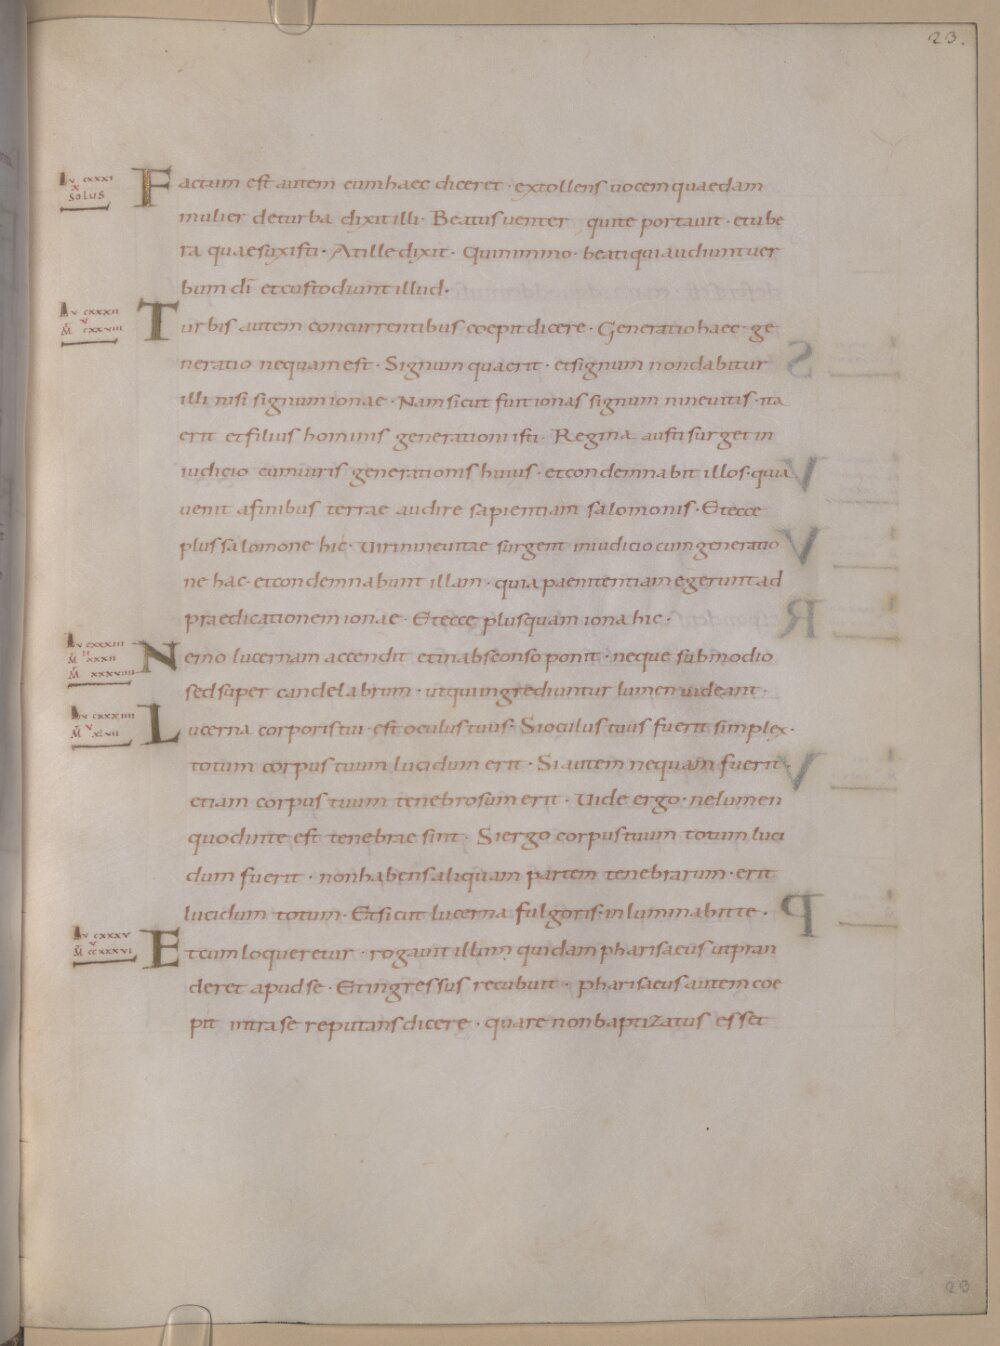 23.
Lv CXXXI
X
SOLUS
Factum est autem cum haec diceret · extollens uocem quaedam
mulier de turba dixit illi · Beatus uenter qui te portauit · et ube
ra quae suxisti · At ille dixit · Quinimmo · beati qui audiunt uer
bum dī et custodiunt illud ·
Lv CXXXII
V
M̄ CXXVIII
Turbis autem concurrentibus coepit dicere · Generatio haec · ge
neratio nequam est · Signum quaerit · et signum non dabitur
illi nisi signum ionae · Nam sicut fuit ionas signum nineuitis · ita
erit et filius hominis generationi isti · Regina austi surget in
iudicio cum uiris generationis huius · et condemnabit illos · quia
uenit a finibus terrae audire sapientiam salomonis · Et ecce
plus salomone hic · Uiri nineuitae surgent in iudicio cum generatio
ne hac · et condemnabunt illam · quia paenitentiam egerunt ad
praedicationem ionae · Et ecce plus quam iona hic ·
Lv CXXXIII
II
M̄ XXXII
M̄ XXXVIIII
Nemo lucernam accendit et in absconso ponit · neque sub modio
sed super candelabrum · ut qui ingrediuntur lumen uideant ·
Lv CXXXIIII
V
M̄ XLVII
Lucerna corporis tui · est oculus tuus · Si oculus tuus fuerit simplex ·
totum corpus tuum lucidum erit · Si autem nequam fuerit ·
etiam corpus tuum tenebrosum erit · Uide ergo · ne lumen
quod in te est tenebrae sint · Si ergo corpus tuum totum luci
dum fuerit · non habens aliquam partem tenebrarum · erit
lucidum totum · Et sicut lucerna fulgoris · inluminabit te ·
Lv CXXXV
V
M̄ CCXXXVI
Et cum loqueretur · rogauit illum quidam pharisaeus ut pran
deret apud se · Et ingressus recubuit · pharisaeus autem coe
pit intra se reputans dicere · quare non baptizatus esset
23